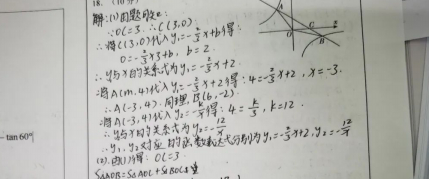 18. (10分)
解:(1)由题可知:
∵OC=3. ∴C(3,0).
∴将C(3,0)代入y₁=-⅔x+b得:
0=-⅔×3+b, b=2.
∴y与x的关系式为y₁=-⅔x+2.
将A(m,4)代入y₁=-⅔x+2得:4=-⅔x+2, x=-3.
∴A(-3,4). 同理, B(6,-2).
将A(-3,4)代入y₂=-k/x得:4=k/3, k=12.
∴y与x的关系式为y₂=-12/x
∴y₁,y₂对应的函数表达式分别为y₁=-⅔x+2, y₂=-12/x
(2).由(1)得: OC=3.
S△AOB=S△AOC+S△BOC
-tan60°
A
O
C
B
x